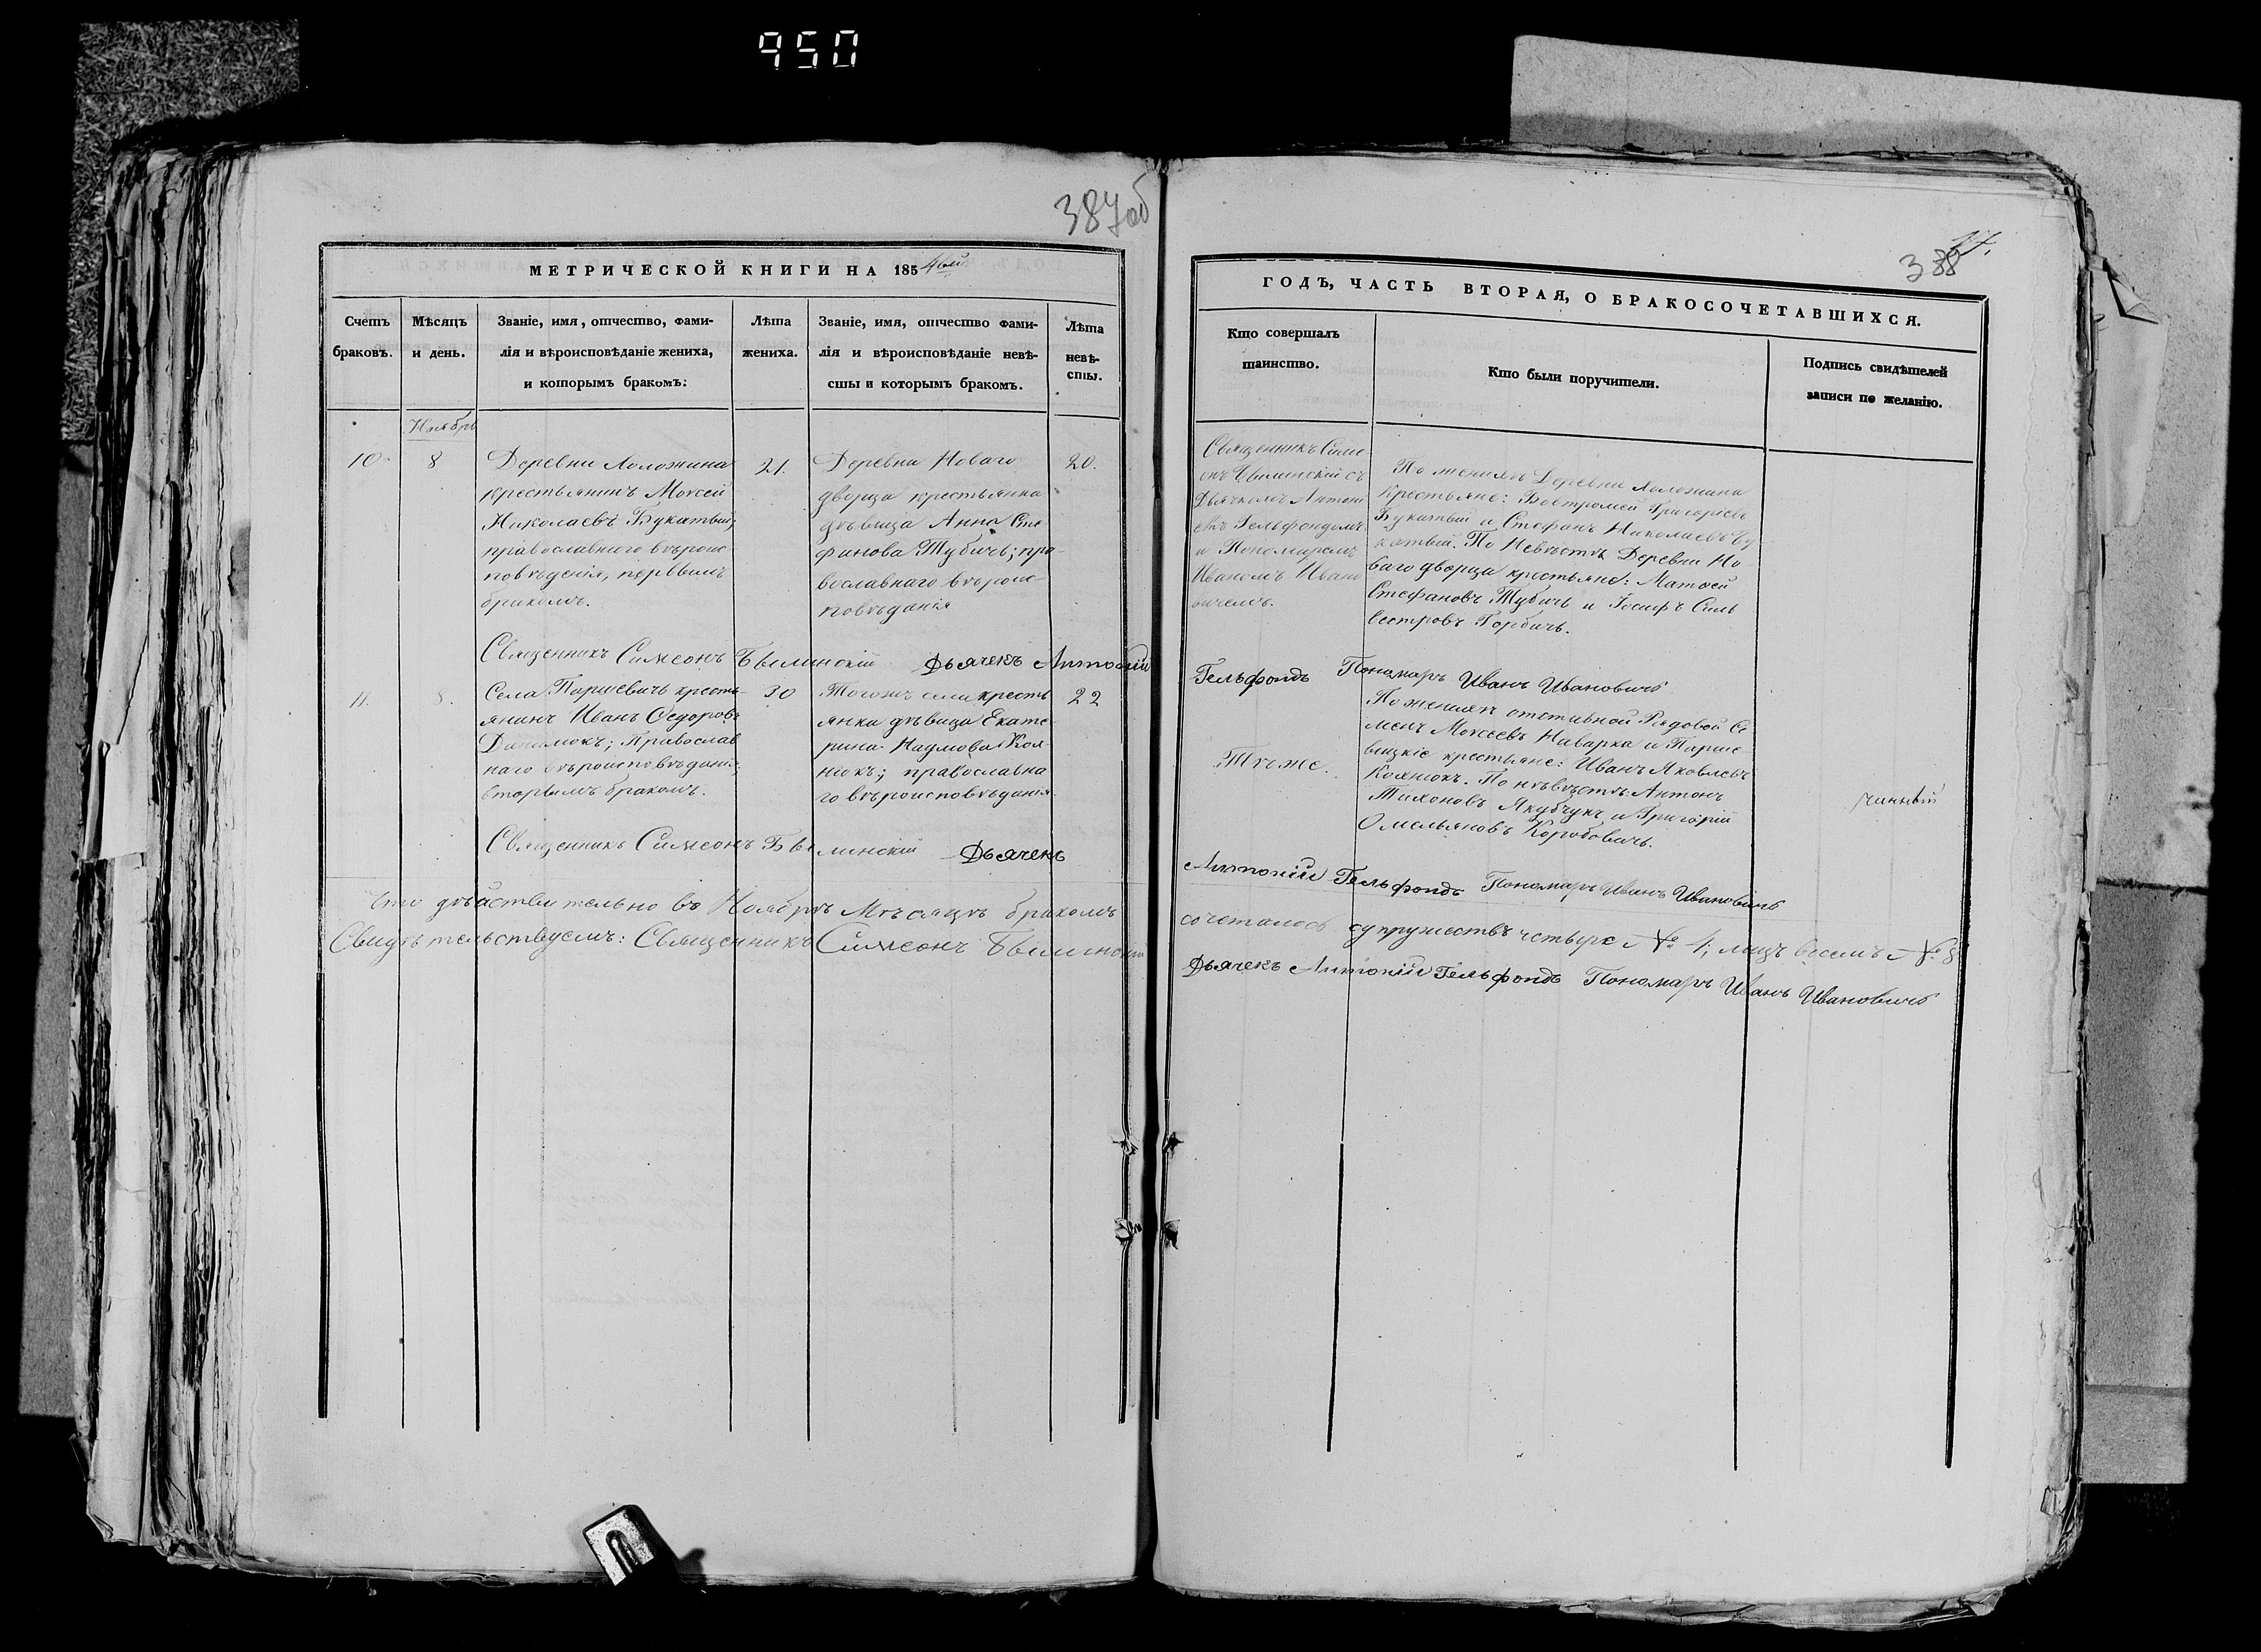 950
387об
МЕТРИЧЕСКОЙ КНИГИ НА 1854ый
Счетъ браковъ.
Мѣсяцъ и день.
Званіе, имя, отчество, фами-
лія и вѣроисповѣданіе жениха,
и которымъ бракомъ:
Лѣта жениха.
Званіе, имя, отчество фами-
лія и вѣроисповѣданіе невѣ-
сты и которымъ бракомъ.
Лѣта невѣ-
сты.
Ноябрь
10.
8
Деревни Ложина
крестьянинъ Моѵсей
Николаевъ Букатый;
православнаго вѣроис-
повѣденія, первымъ
бракомъ.
21.
Деревна Новаго
дворца крестьянка
дѣвица Анна
финова Тубичь; пра-
вославнаго вѣроис-
повѣданія
20.
Священникъ Симеонъ Былинскій Дьячекъ Антоній
11.
8.
Села Паршевичь кресть-
янинъ Иванъ Ѳедоровъ
Православ
наго вѣроисповѣданія;
вторымъ бракомъ.
30
Тогожъ села кресть
янка дѣвица Екате-
рина Наумова Кох-
нюкъ; православна
го вѣроисповѣданія.
22
Священникъ Симеонъ Былинскій Дьячекъ
Что дѣйствительно въ Ноябрѣ Мѣсяцѣ бракомъ
Свидѣтельствуемъ: Священникъ Симеонъ Былинскій
388
ГОДЪ, ЧАСТЬ ВТОРАЯ, О БРАКОСОЧЕТАВШИХСЯ.
Кто совершалъ
таинство.
Кто были поручители.
Подпись свидѣтелей
записи по желанію.
Священникъ Симе
онъ Былинскій съ
Дьячкомъ Антоні
емъ Гельфондомъ
и Пономаремъ
Иваномъ Ивано
вичемъ.
По женихѣ Деревни Ложина
Крестьяне: Григоріевъ
Букатый и Стефанъ Николаевъ Бу
катый. По Невѣстѣ Деревни Но
ваго дворца крестьяне: Матѳей
Стефановъ Тубичь и Іосифъ Силь
вестровъ Горбичь.
Гельфондъ Пономарь Иванъ Ивановичь
Тѣже.
По женихѣ отставной Рядовой Се
менъ Моѵсеевъ Наварка и Парше
вицкіе крестьяне: Иванъ Яковлевъ
Кохнюкъ. По невѣстѣ: Антонъ
Тихоновъ Якубчукъ и Григорій
Омельяновъ Коробовичь.
чинный
Антоній Гельфондъ Пономарь Иванъ Ивановичь
сочеталось супружествъ четыре № 4; лицъ восемь № 8
Дьячекъ Антоній Гельфондъ Пономарь Иванъ Ивановичь